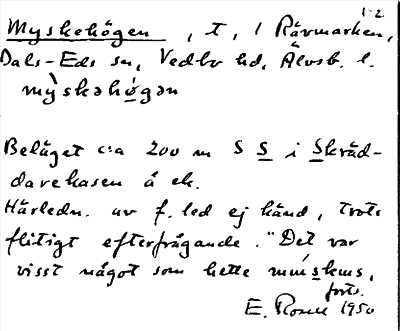 1-2
Myskehögen, t, i Rävmarken,
Dals-Eds sn, Vedbo hd, Älvsb. l.
mỳskəhö̀gən
Beläget c:a 200 m S S i Skräd-
darekasen å ek.
Härledn. av f. led ej känd, trots
flitigt efterfrågande. "Det var
visst något som hette
forts.
E. 1950